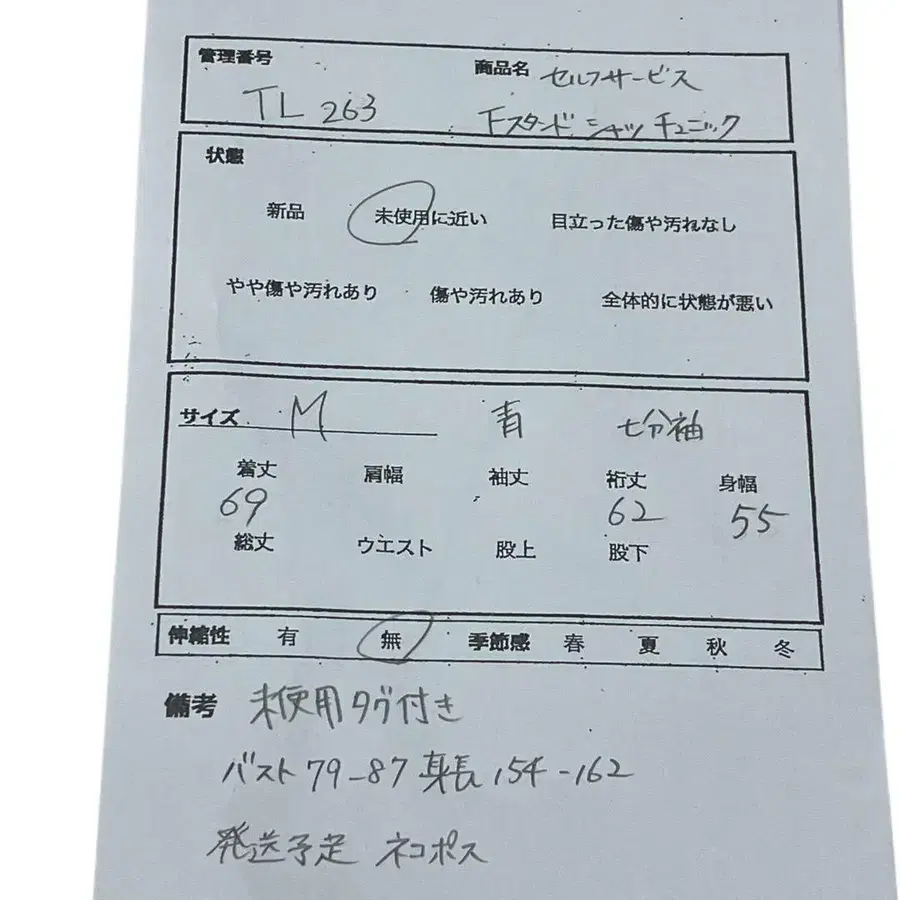 管理番号 商品名 セルフサービス
TL 263 Fスタンド シャツ チュニック
状態
新品 未使用に近い 目立った傷や汚れなし
やや傷や汚れあり 傷や汚れあり 全体的に状態が悪い
サイズ M 青 七分袖
着丈 肩幅 袖丈 裄丈 身幅
69 62 55
総丈 ウエスト 股上 股下
伸縮性 有 無 季節感 春 夏 秋 冬
備考 未使用タグ付き
バスト 79-87 身長 154-162
発送予定 ネコポス